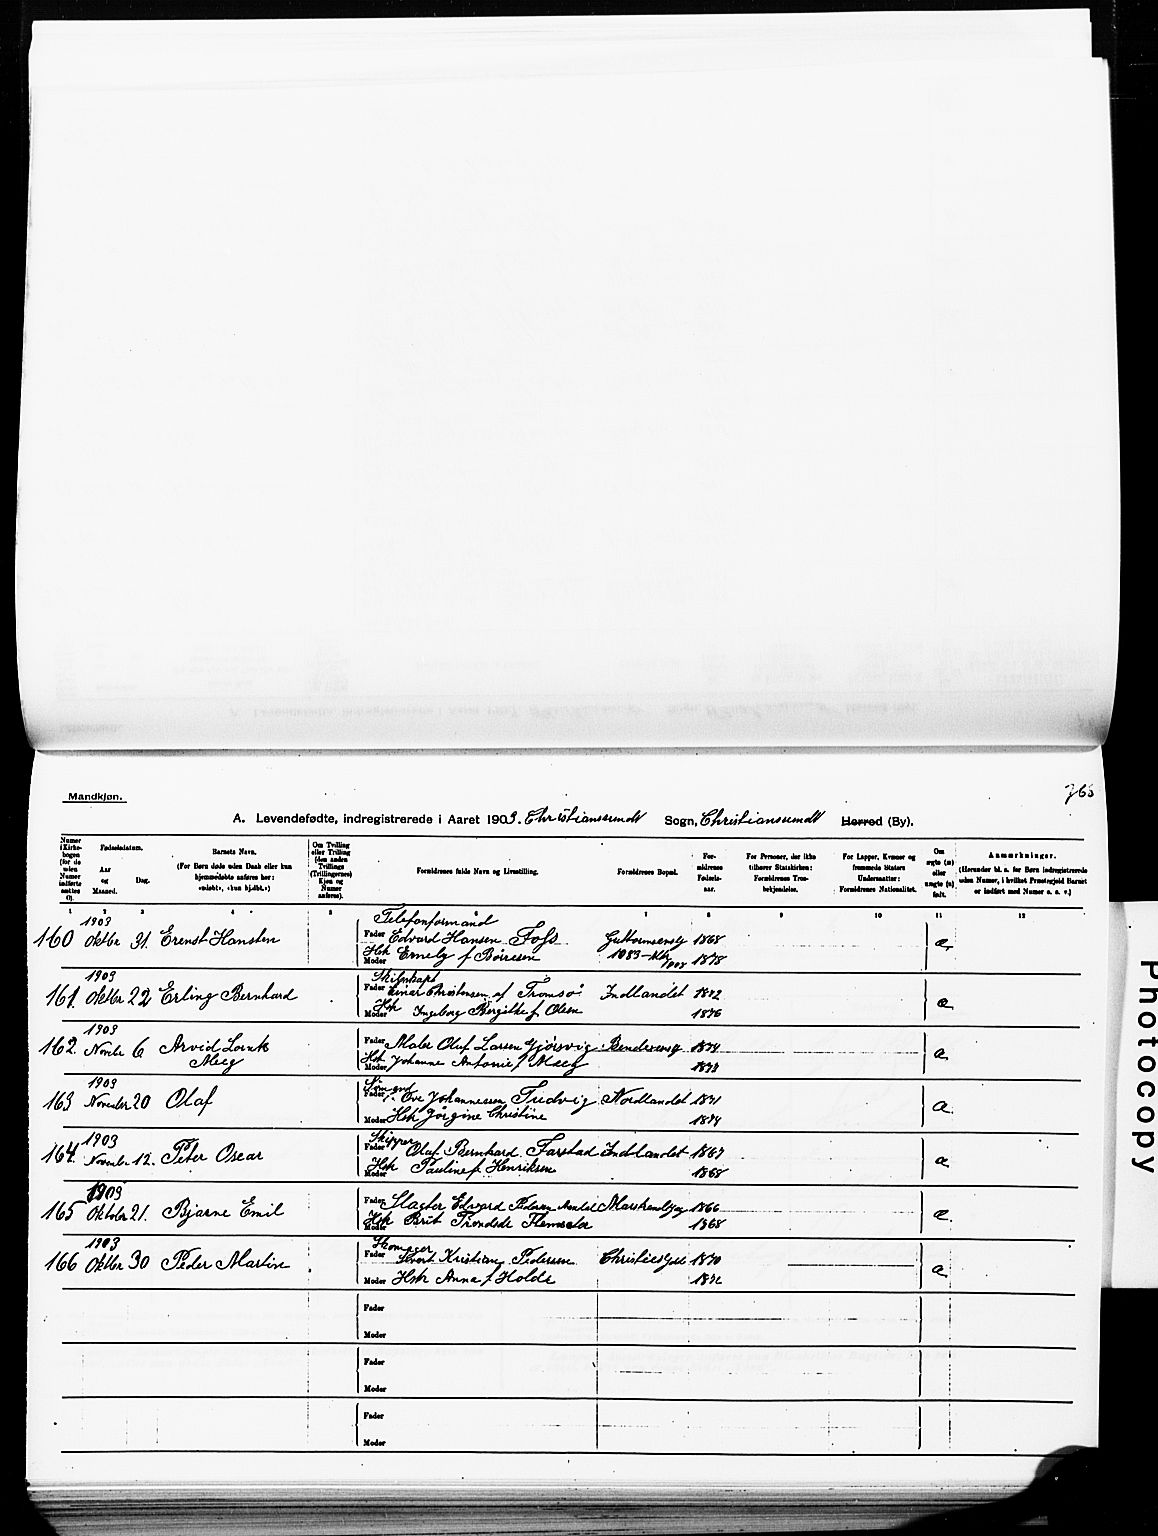 Mandkjøn.
A. Levendefødte, indregistrerede i Aaret 1903. Christianssundt Sogn, Christianssundt Herred (By).
Numer i Kirkebogen (for de uden Numer indførte sættes 0).
Fødselsdatum.
Aar og Maaned.
Dag.
Barnets Navn.
(For Børn døde uden Daab eller kun hjemmedøbte anføres her: «udøbt», «kun hj.dbt.»)
Om Tvilling eller Trilling (den anden Tvillings (Trillingernes) Kjøn og Numer anføres).
Forældrenes fulde Navn og Livsstilling.
Forældrenes Bopæl.
Forældrenes Fødselsaar.
For Personer, der ikke tilhører Statskirken: Forældrenes Trosbekjendelse.
For Lapper, Kvæner og fremmede Staters Undersaatter: Forældrenes Nationalitet.
Om ægte (æ) eller uægte (u) født.
Anmærkninger.
(Herunder bl. a. for Børn indregistrerede uden Numer, i hvilket Præstegjeld Barnet er indført med Numer o. s. v.)
1 2 3 4 5 6 7 8 9 10 11 12
1903 Telefonformand
160 Oktbr 31. Erenst Hansten Fader Edvard Hansen Foss 1868 æ.
Hsk Moder Emely f Børresen 1083 1878
1903
161. Oktbr 22 Erling Bernhard Fader Einar Christensen af Tromsø Indlandet 1872 æ
Hsk Moder Ingeborg Bergitte f. Olsen 1876
1903
162. Novbr 6 Arvid Fader Maler Oluf Larsen Gjørsvig 1874 æ
Hsk Moder Johanne Antonie f.
1903 Sømand
163 November 20 Olaf Fader Ove Johannessen Nordlandet 1871 æ.
Moder Hsk Jørgine Christine 1874
1903 Skipper
164. November 12. Peter Oscar Fader Oluf Bernhard Farstad Indlandet 1867 æ
Hsk Moder Pauline f. Henriksen 1868
1903
165 Oktober 21. Bjarne Emil Fader Slagter Edvard Pedersen 1866 æ.
Hsk Moder Brit 1868
1903
166 Oktbr 30 Peder Martin Fader Sivert Kristian Pedersen 1870 æ
Moder Hsk Anna f. Holde
Fader
Moder
Fader
Moder
Fader
Moder
Photocopy